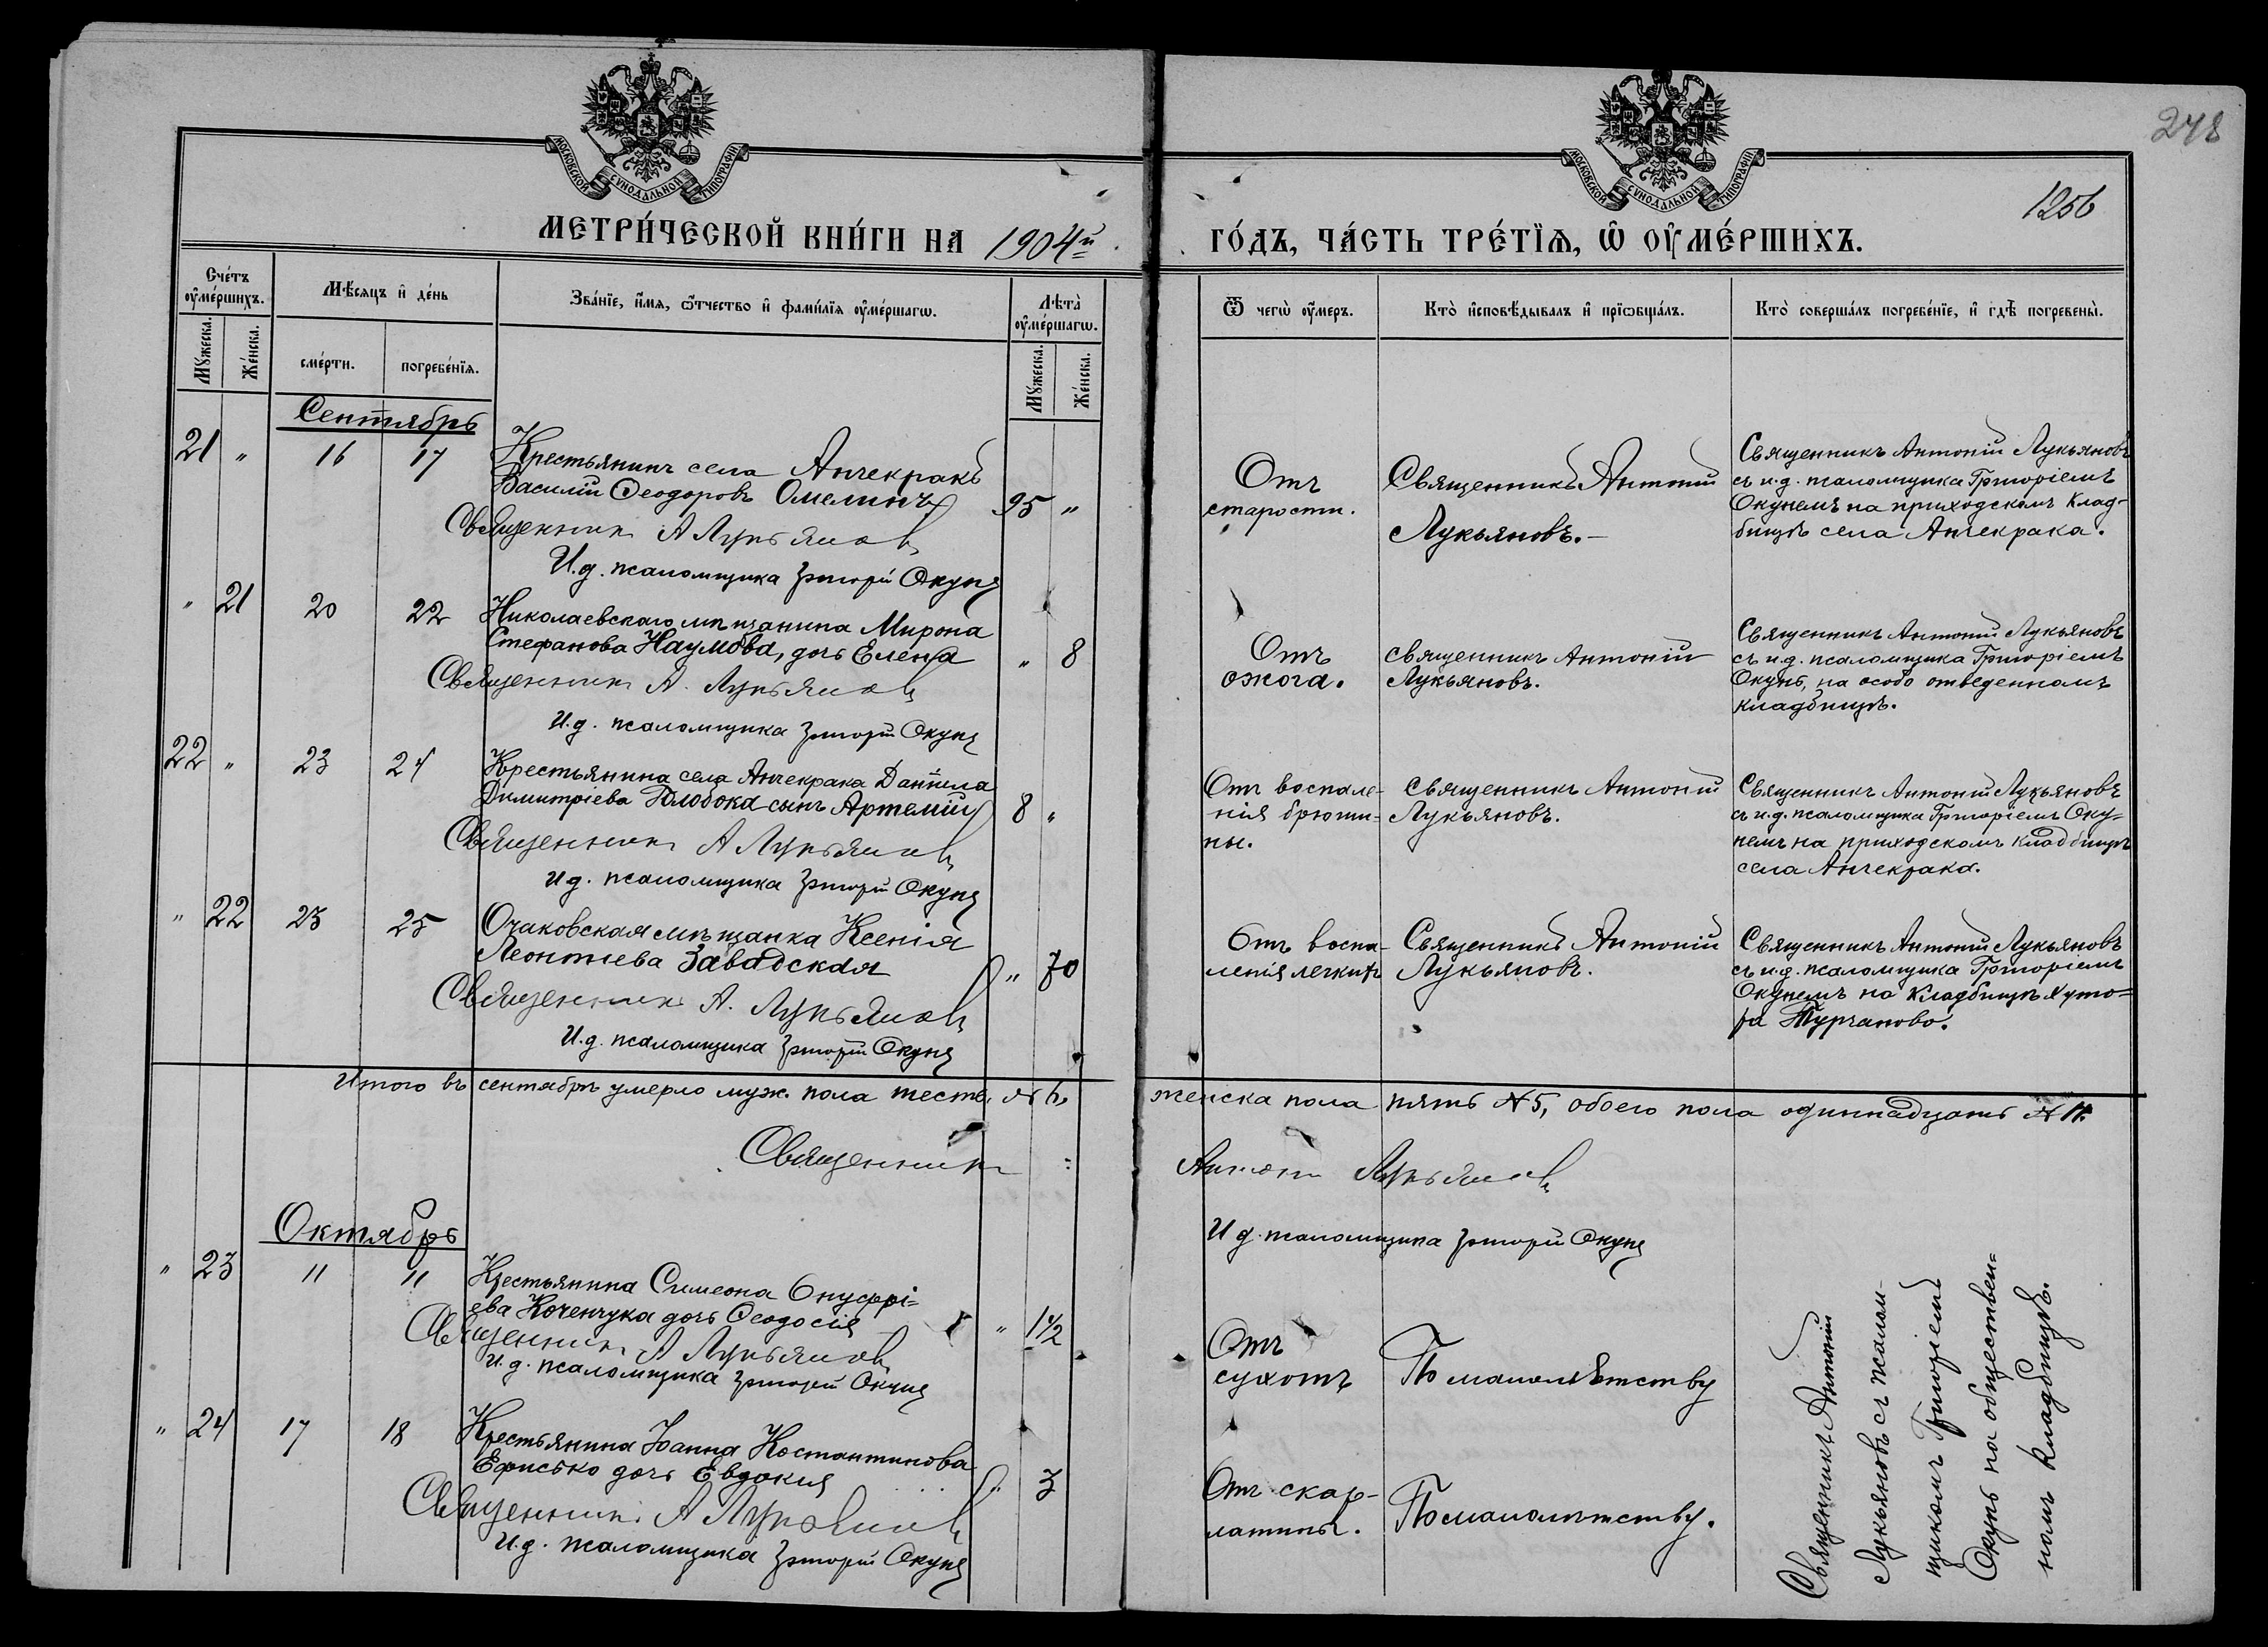 248
1256
МОСКОВСКОЙ СѴНОДАЛЬНОЙ ТИПОГРАФІИ
МОСКОВСКОЙ СѴНОДАЛЬНОЙ ТИПОГРАФІИ
МЕТРИ́ЧЕСКОЙ КНИ́ГИ НА 1904й
ГО́ДЪ, ЧА́СТЬ ТРЕ́ТЇѦ, Ѡ ОУМЕ́РШИХЪ.
Сче́тъ оуме́ршихъ.
Мꙋжеска.
Же́нска.
Мѣ́сяцъ и де́нь
сме́рти.
погребе́нїѧ.
Зва́нїе, и҆́мѧ, ѻ҆́тчество и҆ фами́лїѧ оуме́ршагѡ.
Лѣта̀ оуме́ршагѡ.
Мꙋжеска.
Же́нска.
Ѿ чегѡ̀ оу҆́меръ.
Кто̀ и҆сповѣ́дывалъ и҆ прїѡбща́лъ.
Кто̀ соверша́лъ погребе́нїе, и҆ гдѣ̀ погребены̀.
Сентябрь
21 " 16 17
Крестьянинъ села Анчекракъ
Василій Ѳеодоровъ Омелинъ
95 "
Священникъ А Лукьяновъ
И.д. псаломщика Григорій Окунь
Отъ
старости.
Священникъ Антоній
Лукьяновъ.-
Священникъ Антоній Лукьяновъ
съ и.д. псаломщика Григоріемъ
Окунемъ на приходскомъ клад-
бищѣ села Анчекрака.
" 21 20 22
Николаевскаго мѣщанина Мирона
Стефанова Наумова, дочь Елена
" 8
Священникъ А. Лукьяновъ
И.д. псаломщика Григорій Окунь
Отъ
ожога.
священникъ Антоній
Лукьяновъ.
Священникъ Антоній Лукьяновъ
съ и.д. псаломщика Григоріемъ
Окунь, на особо отведенномъ
кладбищѣ.
22 " 23 24
Крестьянина села Анчекрака Даніила
Димитріева сынъ Артемій
8 "
Священникъ А Лукьяновъ
И.д. псаломщика Григорій Окунь
Отъ воспале-
нія брюши-
ны.
Священникъ Антоній
Лукьяновъ.
Священникъ Антоній Лукьяновъ
съ и.д. псаломщика Григоріемъ Оку-
немъ на приходскомъ кладбищѣ
села Анчекрака.
" 22 23 25
Очаковская мѣщанка Ксенія
Леонтіева Завадская
" 70
Священникъ А. Лукьяновъ
И.д. псаломщика Григорій Окунь
Отъ воспа-
ленія легкихъ
Священникъ Антоній
Лукьяновъ.
Священникъ Антоній Лукьяновъ
съ и.д. псаломщика Григоріемъ
Окунемъ на кладбищѣ хуто-
ра Турчаново.
Итого въ сентябрѣ умерло муж. пола шесть, № 6, женска пола пять № 5, обоего пола одиннадцать № 11.
Священникъ Антоній Лукьяновъ
И д. псаломщика Григорій Окунь
Октябрь
" 23 11 11
Крестьянина Симеона Онуфрі-
ева Коченчука дочь Ѳеодосія
" 1½
Священникъ А Лукьяновъ
И.д. псаломщика Григорій Окунь
Отъ
сухотъ
По малолѣтству
" 24 17 18
Крестьянина Іоанна Костантинова
дочь Евдокія
" 3
Священникъ А Лукьяновъ
И.д. псаломщика Григорій Окунь
Отъ скар-
латины.
По малолѣтству.
Священникъ Антоній
Лукьяновъ съ псалом-
щикомъ Григоріемъ
Окунь на обществен-
номъ кладбищѣ.